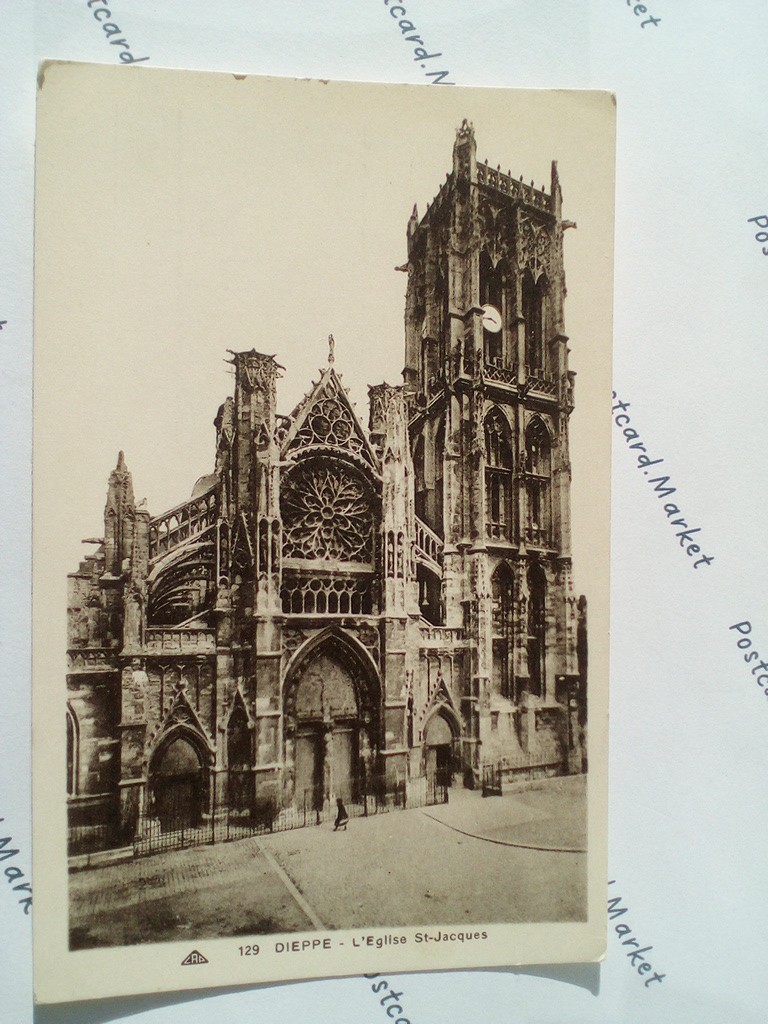 tcard
tcard.M
ket
Pos
tcard.Market
Postca
.Mark
Market
ostc
CAP
129 DIEPPE - L'Eglise St-Jacques